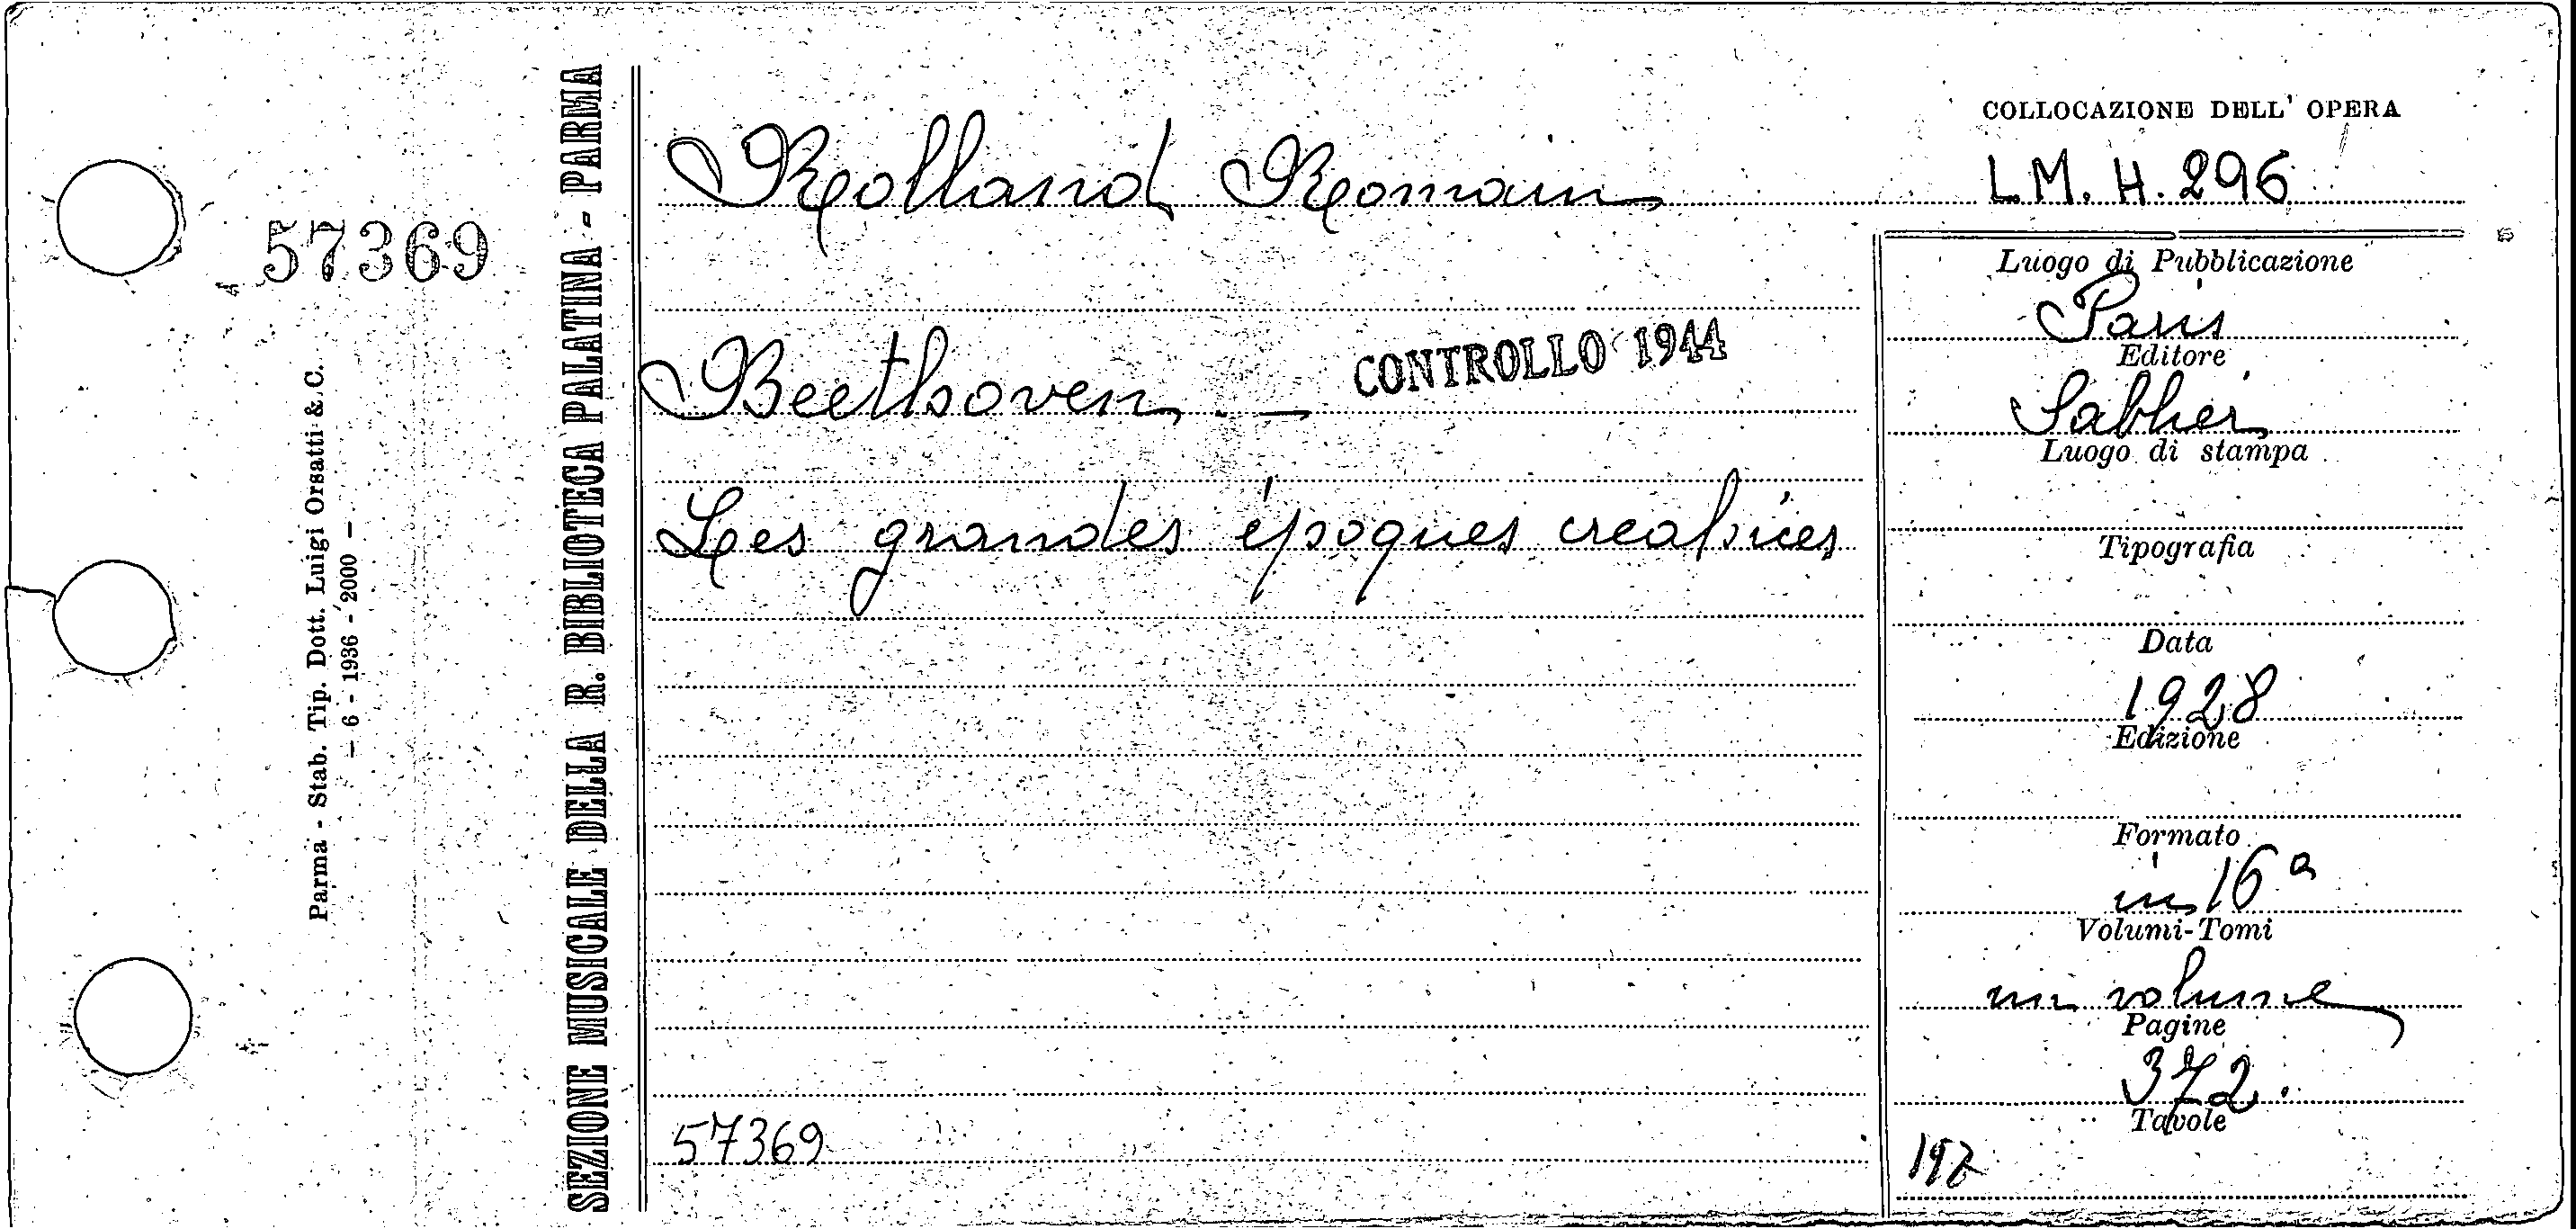 57369
Parma - Stab. Tip. Dott. Luigi Orsatti & C.
- 6 - 1936 - 2000 -
SEZIONE MUSICALE DELLA R. BIBLIOTECA PALATINA - PARMA
Rolland Romain
Beethoven. —
CONTROLLO 1944
Les grandes époques creatrices
57369
COLLOCAZIONE DELL' OPERA
L.M. H. 296
Luogo di Pubblicazione
Paris
Editore
Sabher
Luogo di stampa
Tipografia
Data
1928
Edizione
Formato
in 16a
Volumi-Tomi
un volume
Pagine
372.
Tavole